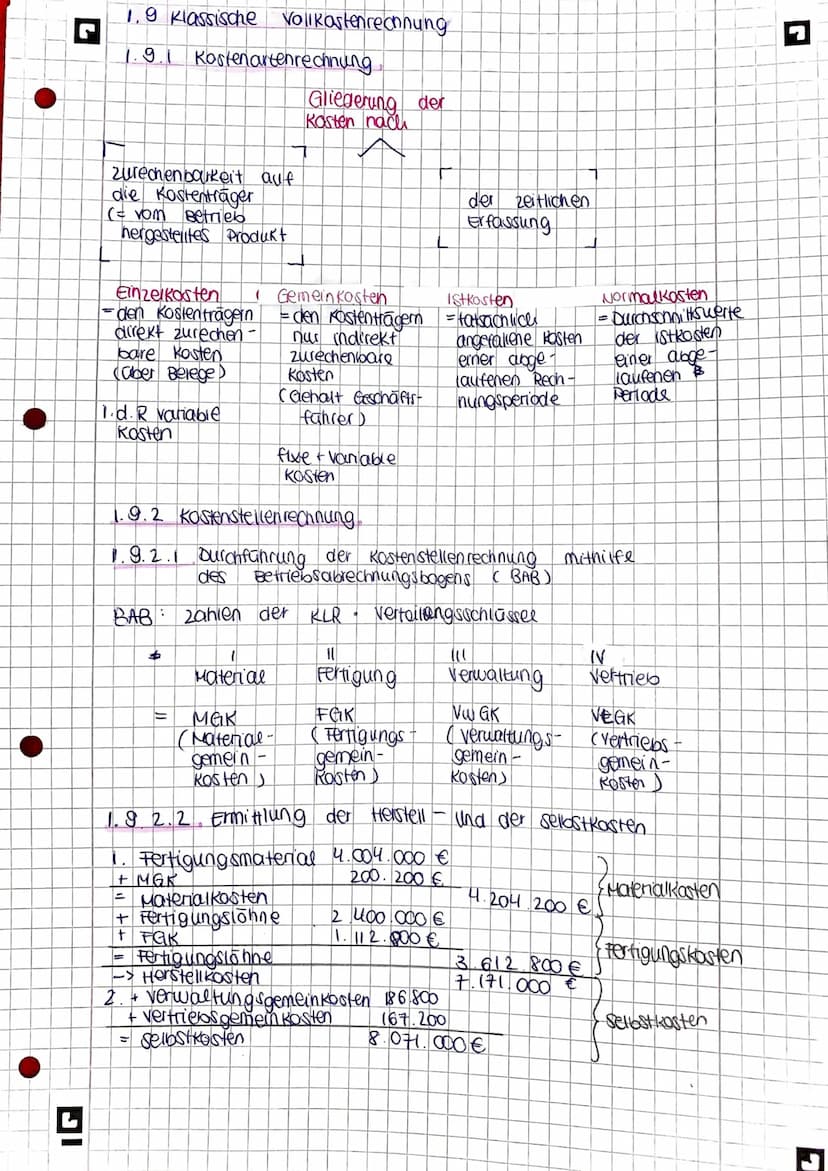 1.9 Klassische Vollkostenrechnung
1.9.1 Kostenartenrechnung
Gliederung der
Kosten nach
zurechenbarkeit auf
die Kostenträger
(= vom Betrieb
hergestelltes Produkt
der zeitlichen
Erfassung
Einzelkosten
= den Kostenträgern
direkt zurechen-
bare Kosten
(über Belege)
i.d.R variable
Kosten
Gemeinkosten
= den Kostenträgern
nur indirekt
zurechenbare
Kosten
(Gehalt Geschäfts-
führer)
fixe + variable
Kosten
Istkosten
= tatsächlich
angefallene Kosten
einer abge-
laufenen Rech-
nungsperiode
Normalkosten
= Durchschnittswerte
der Istkosten
einer abge-
laufenen
Periode
1.9.2 Kostenstellenrechnung
1.9.2.1 Durchführung der Kostenstellenrechnung mithilfe
des Betriebsabrechnungsbogens (BAB)
BAB: Zahlen der KLR · Verteilungsschlüssel
I II III IV
Material Fertigung Verwaltung Vertrieb
= MGK FGK VwGK VtGK
(Material- (Fertigungs- (Verwaltungs- (Vertriebs-
gemein- gemein- gemein- gemein-
kosten) kosten) kosten) kosten)
1.9.2.2. Ermittlung der Herstell- und der Selbstkosten
1. Fertigungsmaterial 4.004.000 €
+ MGK 200.200 €
= Materialkosten 4.204.200 € Materialkosten
+ Fertigungslöhne 2.400.000 €
+ FGK 1.112.800 €
= Fertigungslöhne 3.612.800 € Fertigungskosten
-> Herstellkosten 7.171.000 €
2. + Verwaltungsgemeinkosten 186.800
+ Vertriebsgemeinkosten 167.200 Selbstkosten
= Selbstkosten 8.071.000 €